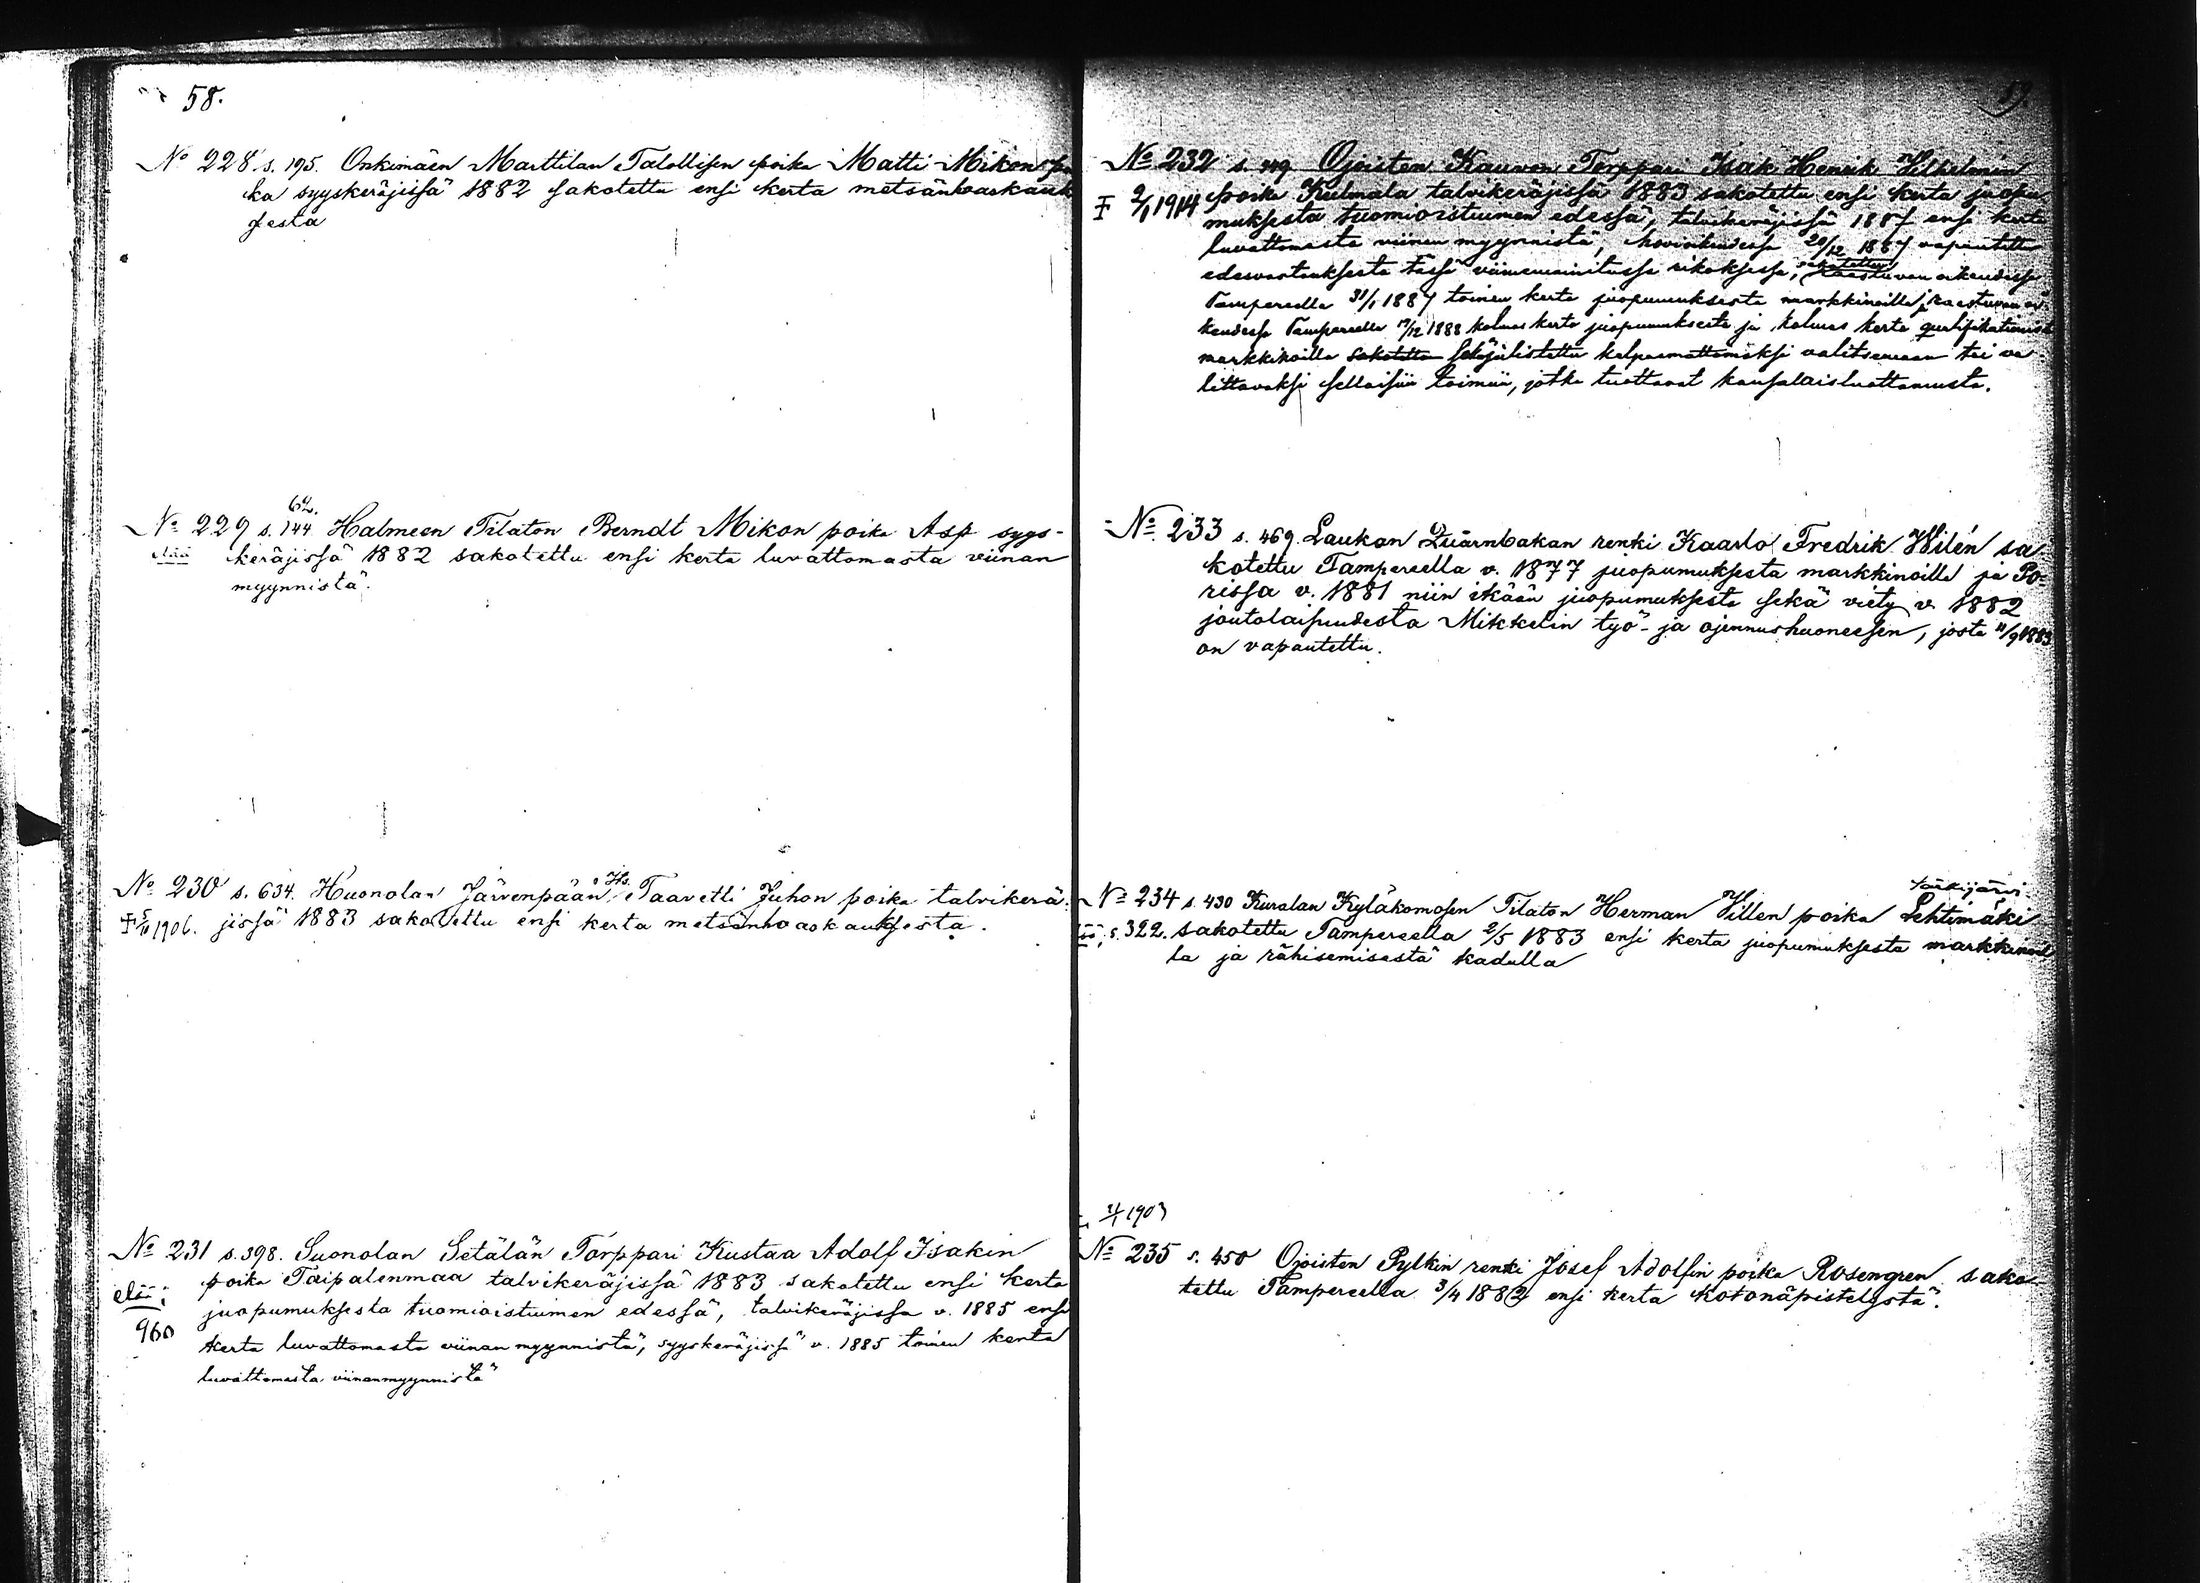 58.
No 228 s. 195. Onkimäen Marttilan Talollisen poika Matti Mikon po
ka syyskeräjissä 1882 sakotettu ensi kerta metsänhaaskauk
sesta
62.
No 229 s. 144 Halmeen Tilaton Berndt Mikon poika Asp syys-
elää keräjissä 1882 sakotettu ensi kerta luvattomasta viinan
myynnistä.
No 230 s. 634. Huonolan Järvenpään Hs. Taavetti Juhon poika talvikerä
1906. jissä 1883 sakotettu ensi kerta metsänhaaskauksesta.
No 231 s. 398. Suonolan Setälän Torppari Kustaa Adolf Isakin
poika Taipalenmaa talvikeräjissä 1883 sakotettu ensi kerta
elää;
juopumuksesta tuomioistuimen edessä, talvikeräjissä v. 1885 ensi
960
kerta luvattomasta viinan myynnistä, syyskeräjissä v. 1885 toinen kerta
luvattomasta viinanmyynnistä
59
No 232 s. 249 Ojoisten Kauvon Torppari Isak Henrik Vilhelmin
2/1 1914 poika Kulmala talvikeräjissä 1883 sakotettu ensi kerta juopu
muksesta tuomioistuimen edessä, talvikeräjissä 1887 ensi kerta
luvattomasta viinan myynnistä, hovioikeudessa 20/12 1887 vapautettu
edesvastauksesta tässä viimemainitussa rikoksessa, sakotettu raastuvan oikeudessa
Tampereella 31/1 1887 toinen kerta juopumuksesta markkinoilla, ja raastuvan oi
keudessa Tampereella 17/12 1888 kolmas kerta juopumuksesta ja kolmas kerta
markkinoilla sakotettu sekä julistettu kelpaamattomaksi valitsemaan tai va
littavaksi sellaisiin toimiin, jotka tuottavat kansalaisluottamusta.
No 233 s. 469. Laukon Quarnbakan renki Kaarlo Fredrik Wilén sa
kotettu Tampereella v. 1877 juopumuksesta markkinoilla ja Po-
rissa v. 1881 niin ikään juopumuksesta sekä viety v. 1882
joutolaisuudesta Mikkelin työ- ja ojennushuoneesen, josta 11/9 1883
on vapautettu.
Särkijärvi
No 234 s. 430 Kuralan Kyläkomosen Tilaton Herman Villen poika Lehtimäki
s. 322. sakotettu Tampereella 2/5 1883 ensi kerta juopumuksesta markkinoil
la ja rähisemisestä kadulla
1903
No 235 s. 450 Ojoisten Pylkin renki Josef Adolfin poika Rosengren sako
tettu Tampereella 3/4 1882 ensi kerta kotonäpistelystä.